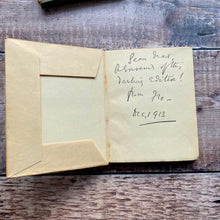 Dear Dad,
A Souvenir of the
Darling Edition!
from
Dec, 1913